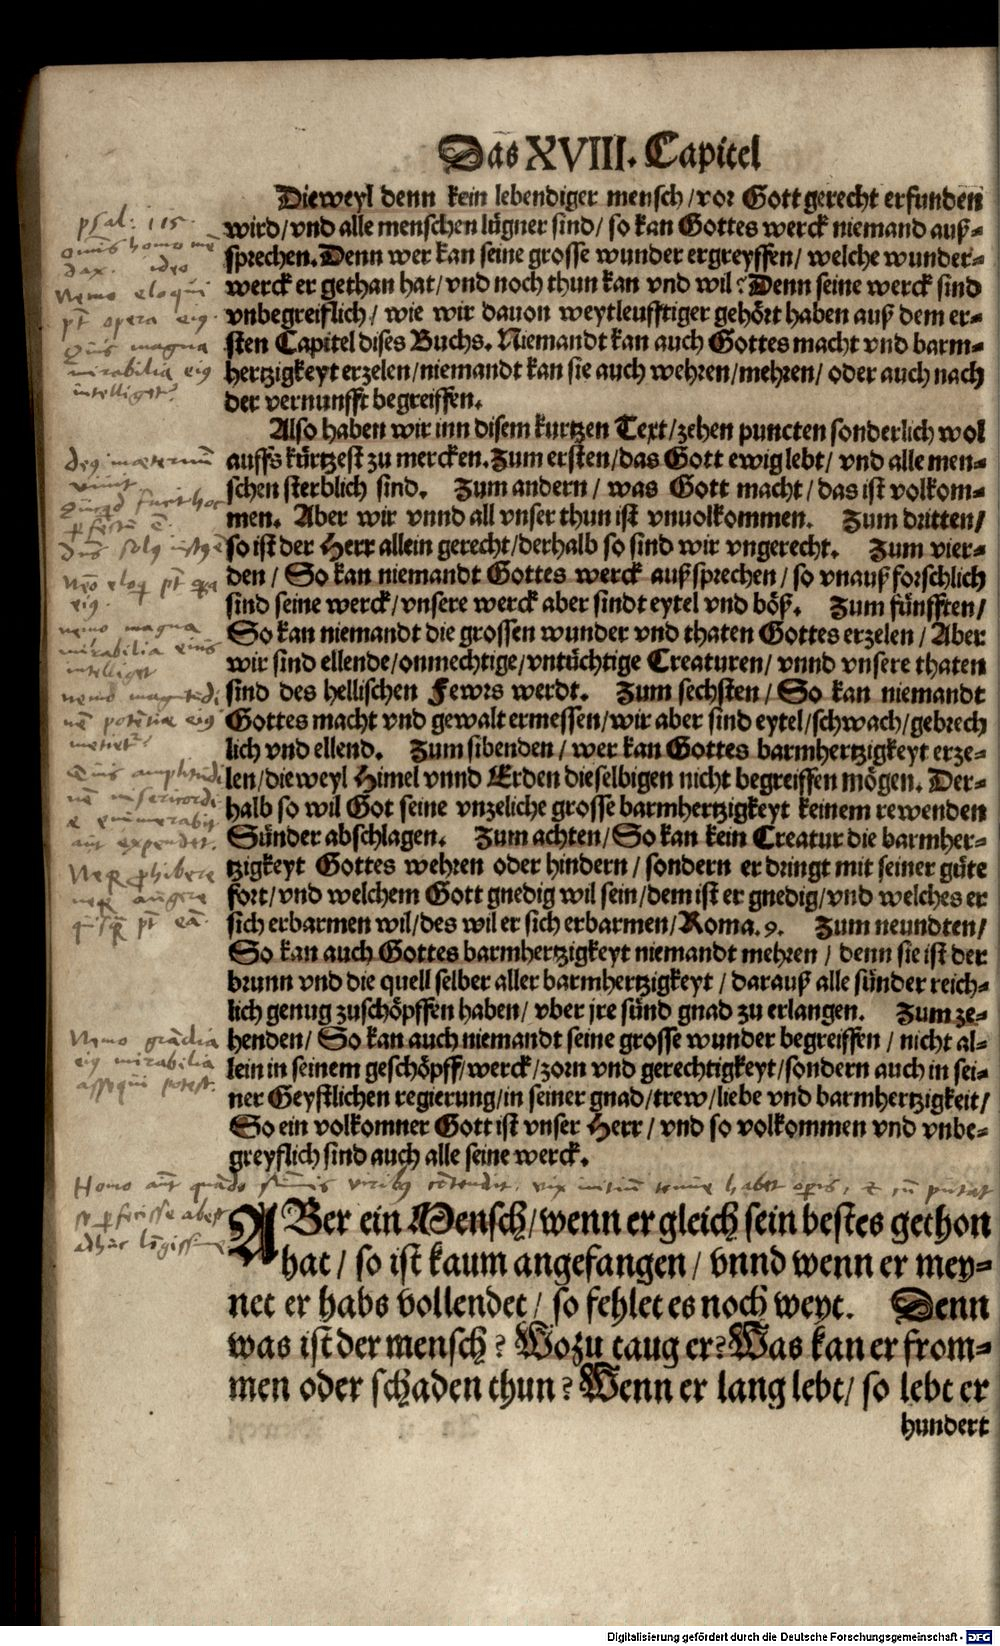 Das XVIII. Capitel
Dieweyl denn kein lebendiger mensch/vor Gott gerecht erfunden
wird/vnd alle menschen lügner sind/so kan Gottes werck niemand auß-
sprechen. Denn wer kan seine grosse wunder ergreyffen/welche wunder-
werck er gethan hat/vnd noch thun kan vnd wil? Denn seine werck sind
vnbegreiflich/wie wir dauon weytleufftiger gehört haben auß dem er-
sten Capitel dises Buchs. Niemandt kan auch Gottes macht vnd barm-
hertzigkeyt erzelen/niemandt kan sie auch wehren/mehren/oder auch nach
der vernunfft begreiffen.
Also haben wir inn disem kurtzen Text/zehen puncten sonderlich wol
auffs kürtzest zu mercken. Zum ersten/das Gott ewig lebt/vnd alle men-
schen sterblich sind. Zum andern/was Gott macht/das ist volkom-
men. Aber wir vnnd all vnser thun ist vnuolkommen. Zum dritten/
so ist der Herr allein gerecht/derhalb so sind wir vngerecht. Zum vier-
den/So kan niemandt Gottes werck außsprechen/so vnaußforschlich
sind seine werck/vnsere werck aber sindt eytel vnd böß. Zum fünfften/
So kan niemandt die grossen wunder vnd thaten Gottes erzelen/Aber
wir sind ellende/onmechtige/vntüchtige Creaturen/vnnd vnsere thaten
sind des hellischen Fewrs werdt. Zum sechsten/So kan niemandt
Gottes macht vnd gewalt ermessen/wir aber sind eytel/schwach/gebrech
lich vnd ellend. Zum sibenden/wer kan Gottes barmhertzigkeyt erze-
len/dieweyl Himel vnnd Erden dieselbigen nicht begreiffen mögen. Der-
halb so wil Got seine vnzeliche grosse barmhertzigkeyt keinem rewenden
Sünder abschlagen. Zum achten/So kan kein Creatur die barmher-
tzigkeyt Gottes wehren oder hindern/sondern er dringt mit seiner güte
fort/vnd welchem Gott gnedig wil sein/dem ist er gnedig/vnd welches er
sich erbarmen wil/des wil er sich erbarmen/Roma. 9. Zum neundten/
So kan auch Gottes barmhertzigkeyt niemandt mehren/denn sie ist der
brunn vnd die quell selber aller barmhertzigkeyt/darauß alle sünder reich-
lich genug zuschöpffen haben/vber jre sünd gnad zu erlangen. Zum ze-
henden/So kan auch niemandt seine grosse wunder begreiffen/nicht al-
lein in seinem geschöpff/werck/zorn vnd gerechtigkeyt/sondern auch in sei-
ner Geystlichen regierung/in seiner gnad/trew/liebe vnd barmhertzigkeit/
So ein volkomner Gott ist vnser Herr/vnd so volkommen vnd vnbe-
greyflich sind auch alle seine werck.
ABer ein Mensch/wenn er gleich sein bestes gethon
hat/so ist kaum angefangen/vnnd wenn er mey-
net er habs vollendet/so fehlet es noch weyt. Denn
was ist der mensch? Wozu taug er? Was kan er from-
men oder schaden thun? Wenn er lang lebt/so lebt er
hundert
psal: 115.
omīs homo mē
dax. ideo
Nemo eloqui
pt opera eiꝰ.
Quis magna
mirabilia eiꝰ
intelliget?
nemo magna
mirabilia eius
intelliget
Nemo
mirabilia
Homo
Digitalisierung gefördert durch die Deutsche Forschungsgemeinschaft - DFG